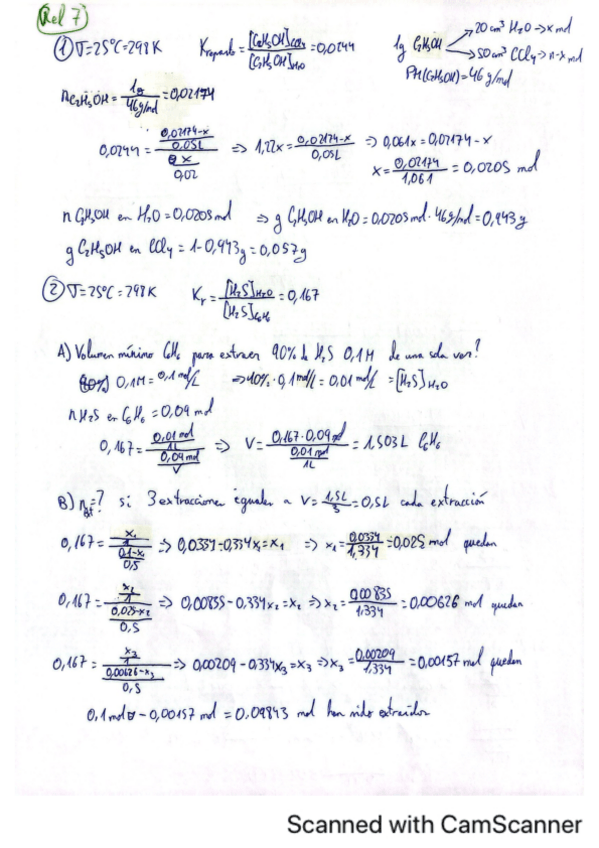 Rel 7
① T=25ºC=298K K_reparto = [C₂H₅OH]CCl₄ / [C₂H₅OH]H₂O = 0,0244 1g C₂H₅OH → 20 cm³ H₂O → x mol
→ 50 cm³ CCl₄ → n-x mol
PM(C₂H₅OH)=46 g/mol
nC₂H₅OH = 1g / 46g/mol = 0,02174
0,0244 = ((0,02174-x)/0,05L) / (x/0,02) ⇒ 1,22x = (0,02174-x)/0,05L ⇒ 0,061x = 0,02174-x
x = 0,02174/1,061 = 0,0205 mol
n C₂H₅OH en H₂O = 0,0205 mol ⇒ g C₂H₅OH en H₂O = 0,0205 mol · 46g/mol = 0,943 g
g C₂H₅OH en CCl₄ = 1-0,943g = 0,057g
② T=25ºC=298K Kr = [H₂S]H₂O / [H₂S]C₆H₆ = 0,167
A) Volumen mínimo C₆H₆ para extraer 90% de H₂S 0,1M de una sola vez?
0,1M = 0,1 mol/L ⇒ 10% · 0,1 mol/L = 0,01 mol/L = [H₂S]H₂O
n H₂S en C₆H₆ = 0,09 mol
0,167 = (0,01 mol/1L) / (0,09 mol/V) ⇒ V = (0,167·0,09 mol) / (0,01 mol/1L) = 1,503 L C₆H₆
B) n_ext = ? si 3 extracciones iguales a V = 1,5L/3 = 0,5L cada extracción
0,167 = (x₁/1) / ((0,1-x₁)/0,5) ⇒ 0,0334-0,334x₁ = x₁ ⇒ x₁ = 0,0334/1,334 = 0,025 mol quedan
0,167 = (x₂/1) / ((0,025-x₂)/0,5) ⇒ 0,00835-0,334x₂ = x₂ ⇒ x₂ = 0,00835/1,334 = 0,00626 mol quedan
0,167 = (x₃/1) / ((0,00626-x₃)/0,5) ⇒ 0,00209-0,334x₃ = x₃ ⇒ x₃ = 0,00209/1,334 = 0,00157 mol quedan
0,1 mol - 0,00157 mol = 0,09843 mol han sido extraídos
Scanned with CamScanner